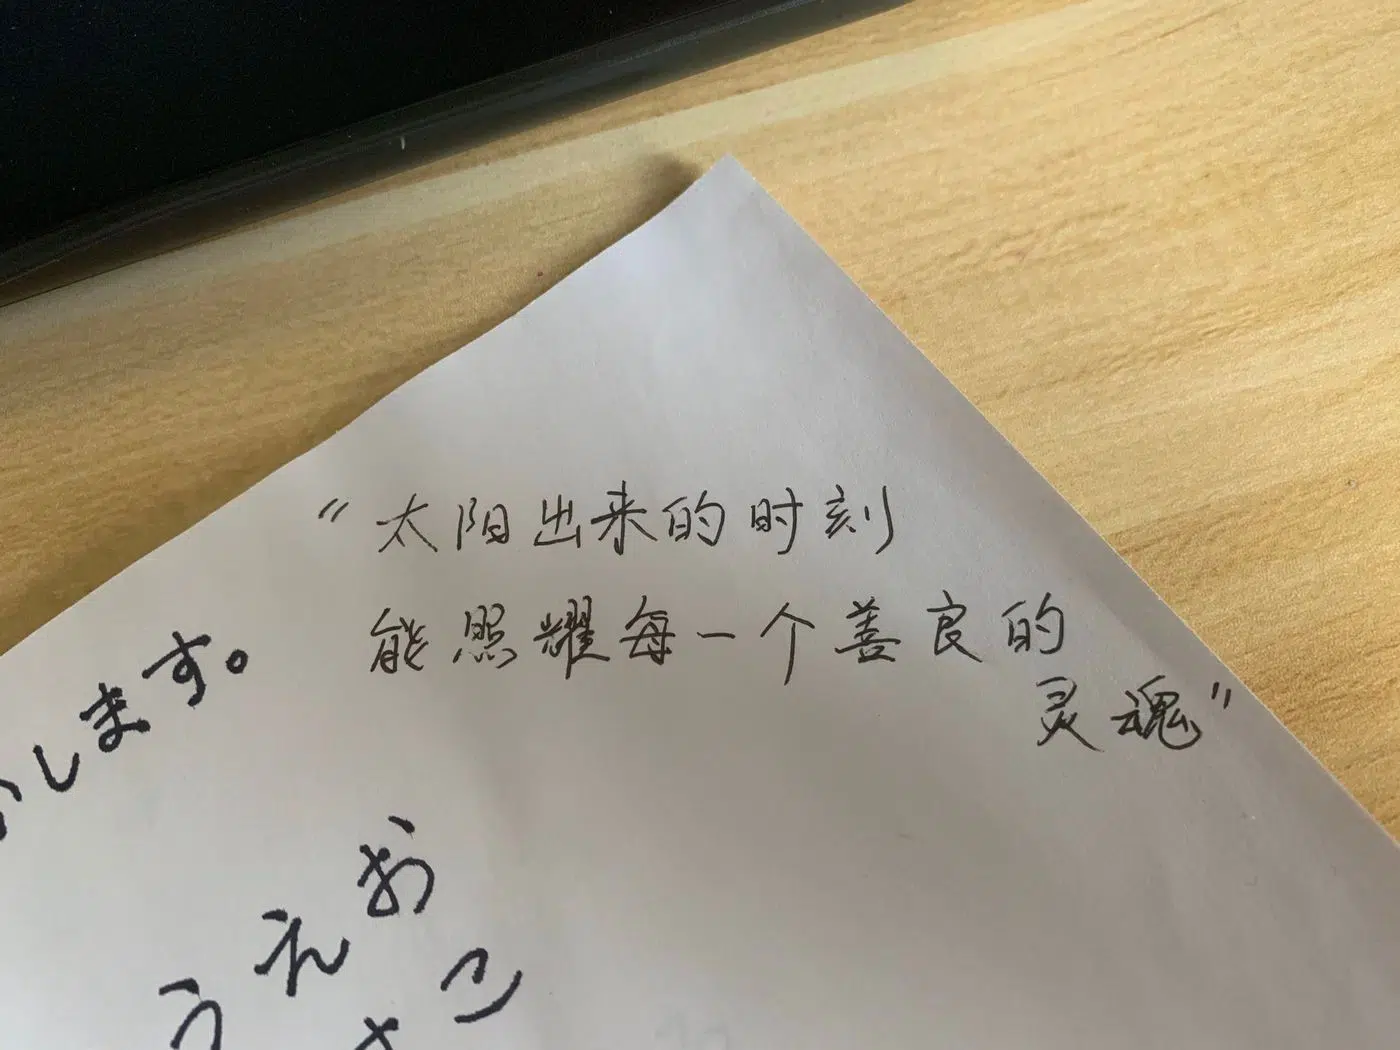 “太阳出来的时刻
能照耀每一个善良的
灵魂”
します。
うえお
こ